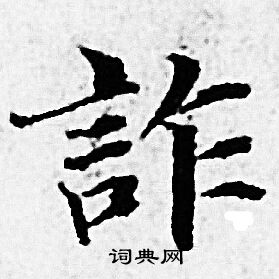 詐
词典网